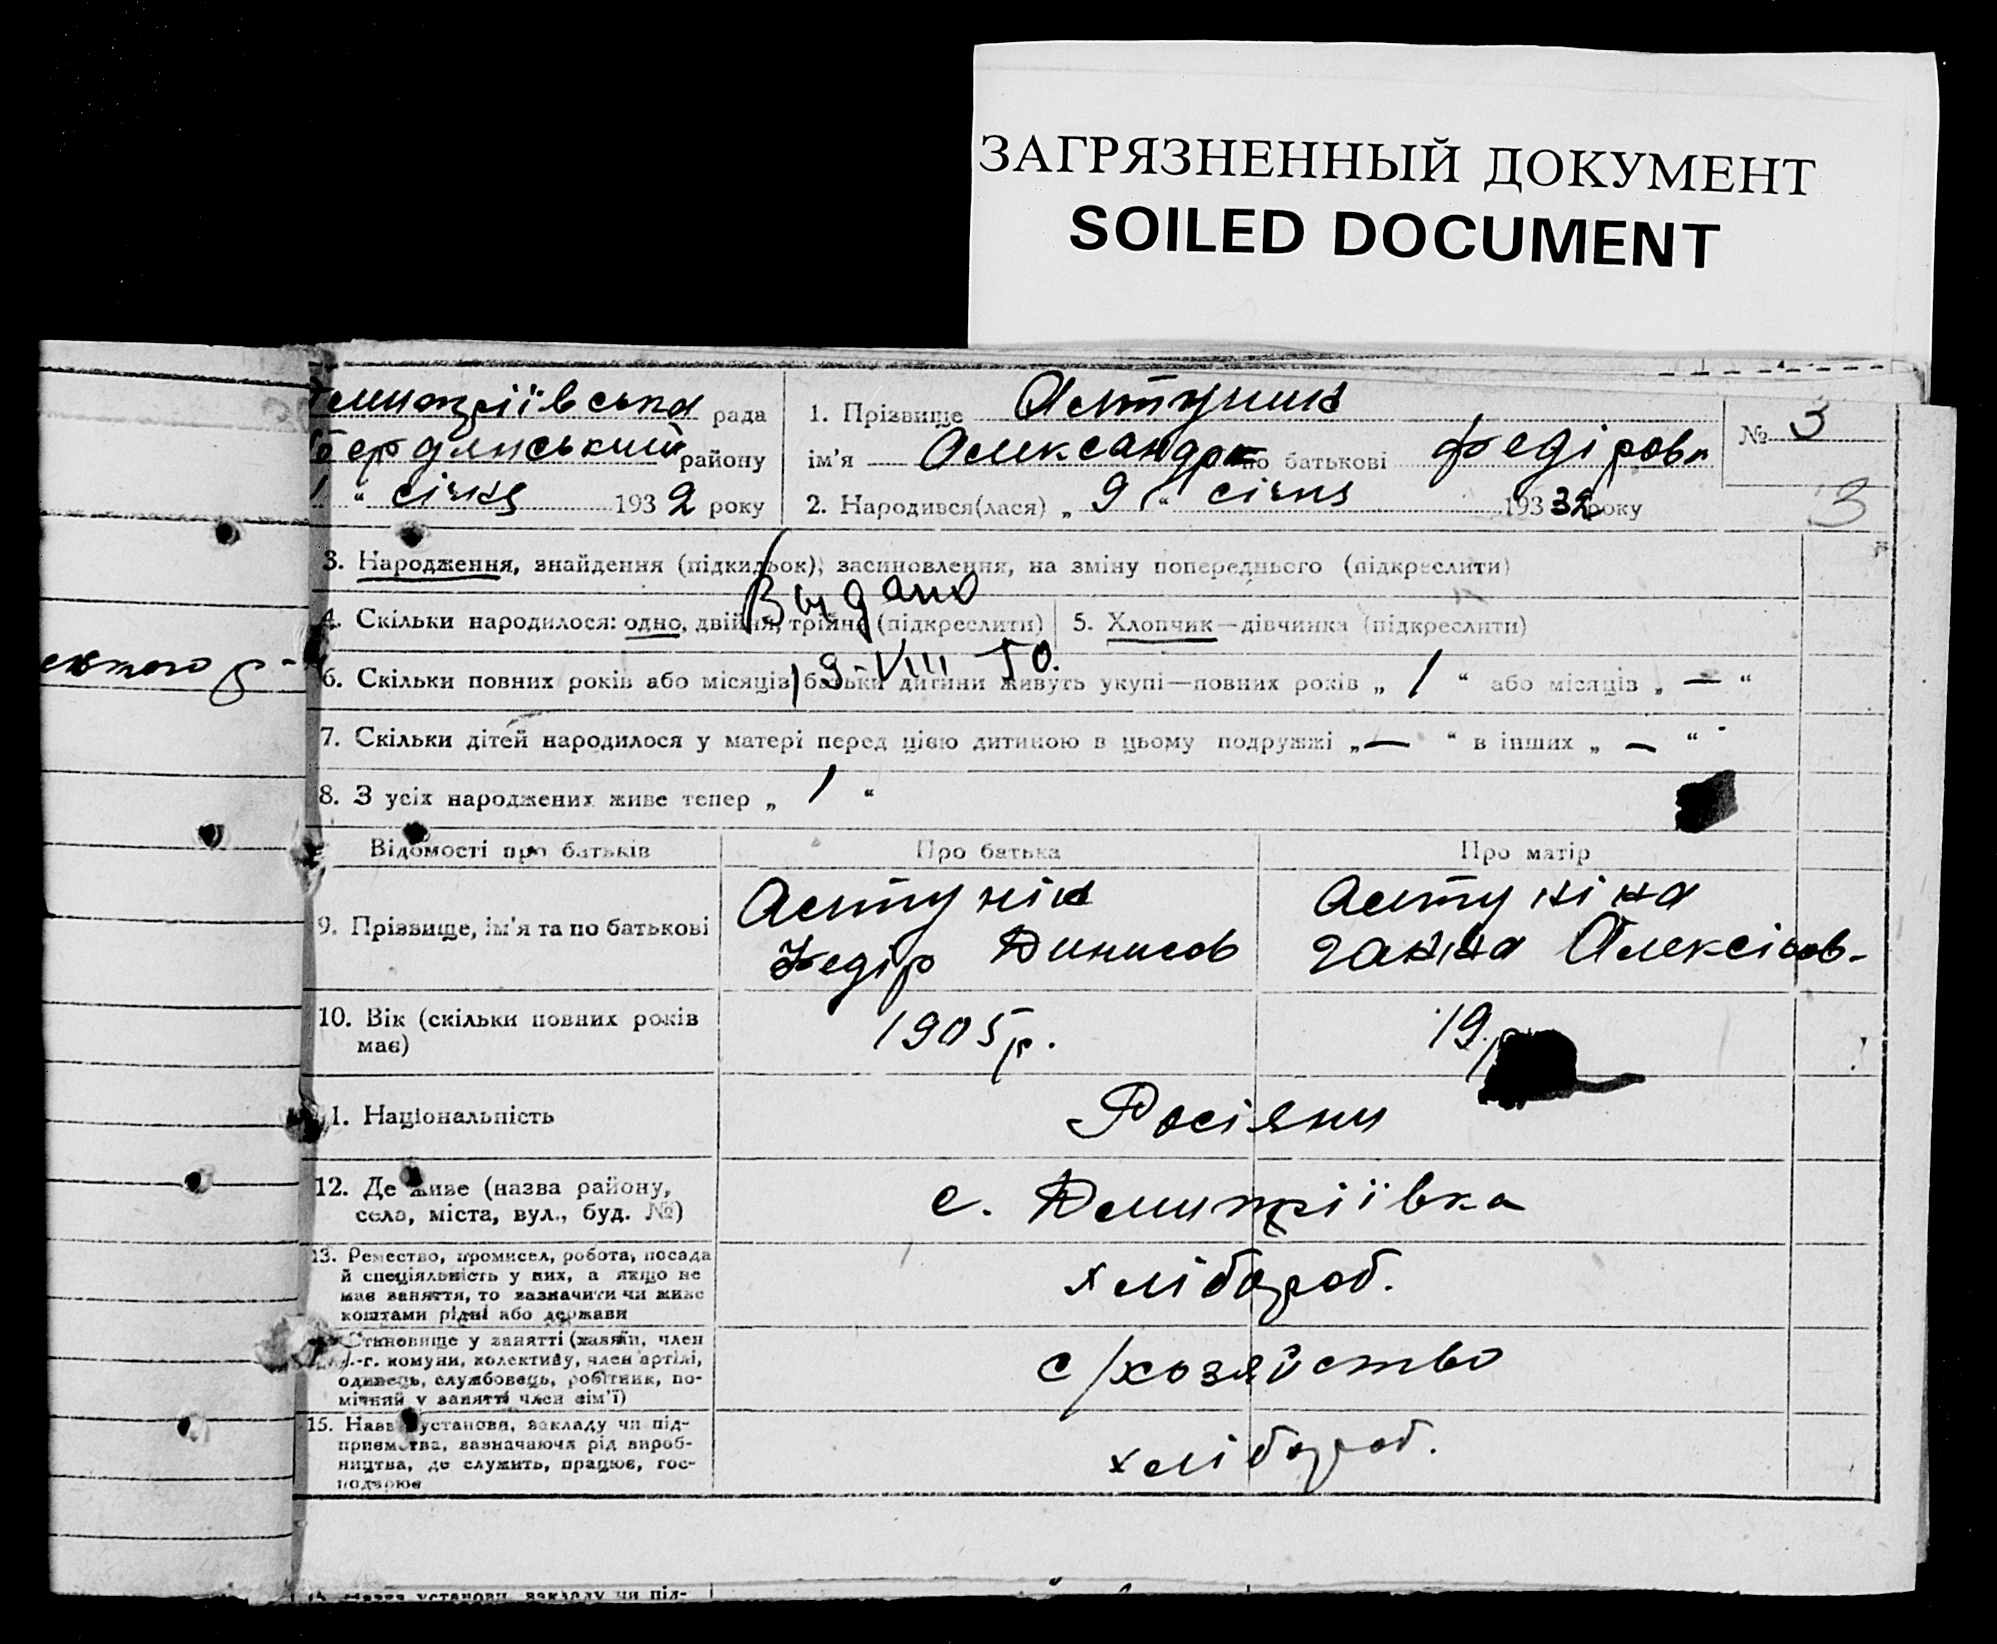 ЗАГРЯЗНЕННЫЙ ДОКУМЕНТ
SOILED DOCUMENT
Дмитріївська рада
Бердянський району
" січня 1932 року
1. Прізвище Астунин
ім'я Олександр по батькові Федірова
2. Народився(лася) „ 9 " січня 193 32 року
№ 3
3
3. Народження, знайдення (підкидьок), засиновлення, на зміну попереднього (підкреслити)
Выдано
4. Скільки народилося: одно, двійня, трійня (підкреслити)
5. Хлопчик—дівчинка (підкреслити)
9-VIII 50.
6. Скільки повних років або місяців батьки дитини живуть укупі—повних років „ 1 " або місяців „ — "
7. Скільки дітей народилося у матері перед цією дитиною в цьому подружжі „ — " в інших „ — "
8. З усіх народжених живе тепер „ 1 "
Відомості про батьків
Про батька
Про матір
9. Прізвище, ім'я та по батькові
Астунін
Федір Динисов
Астуніна
Ганна Олексіюв-
10. Вік (скільки повних років
має)
1905р.
19
11. Національність
Росіяни
12. Де живе (назва району,
село, міста, вул., буд. №)
с. Дмитріївка
13. Ремество, промисел, робота, посада
й спеціяльність у них, а якщо не
має заняття, то зазначити чи живе
коштами рідні або держави
хлібороб.
Становище у занятті (хазяїн, член
с.-г. комуни, колективу, член артілі,
одинець, службовець, робітник, по-
мічний у занятті член сім'ї)
с/хозяйство
15. Назва установи, закладу чи під-
приємства, зазначаючи рід вироб-
ництва, де служить, працює, гос-
подарює
хлібороб.
15. Назва установи, закладу чи під-